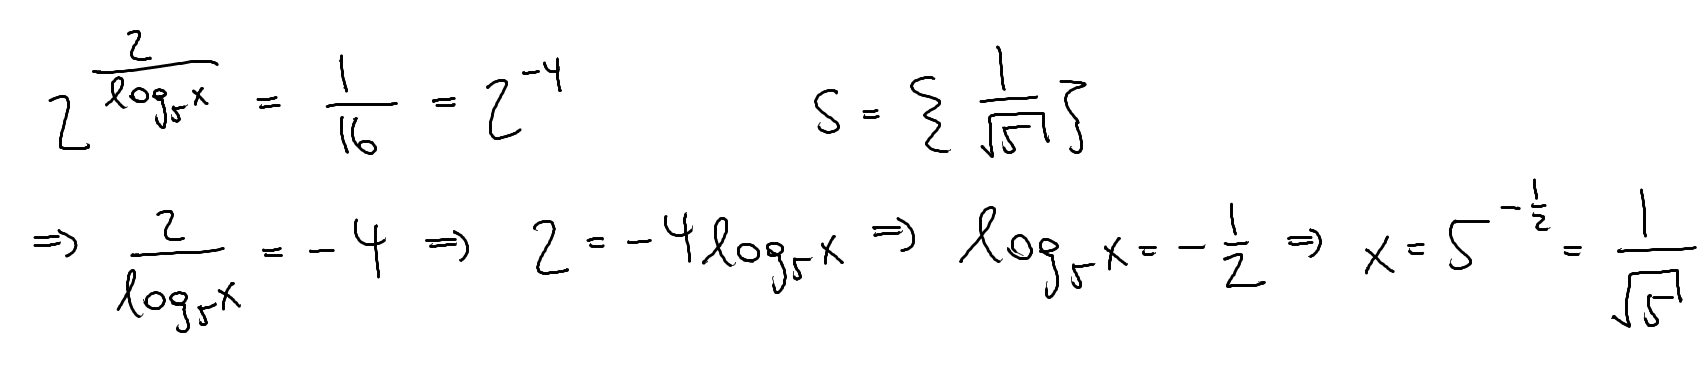 2^(2/log₅x) = 1/16 = 2^-4    S = {1/√5}
⇒ 2/log₅x = -4 ⇒ 2 = -4log₅x ⇒ log₅x = -1/2 ⇒ x = 5^(-1/2) = 1/√5